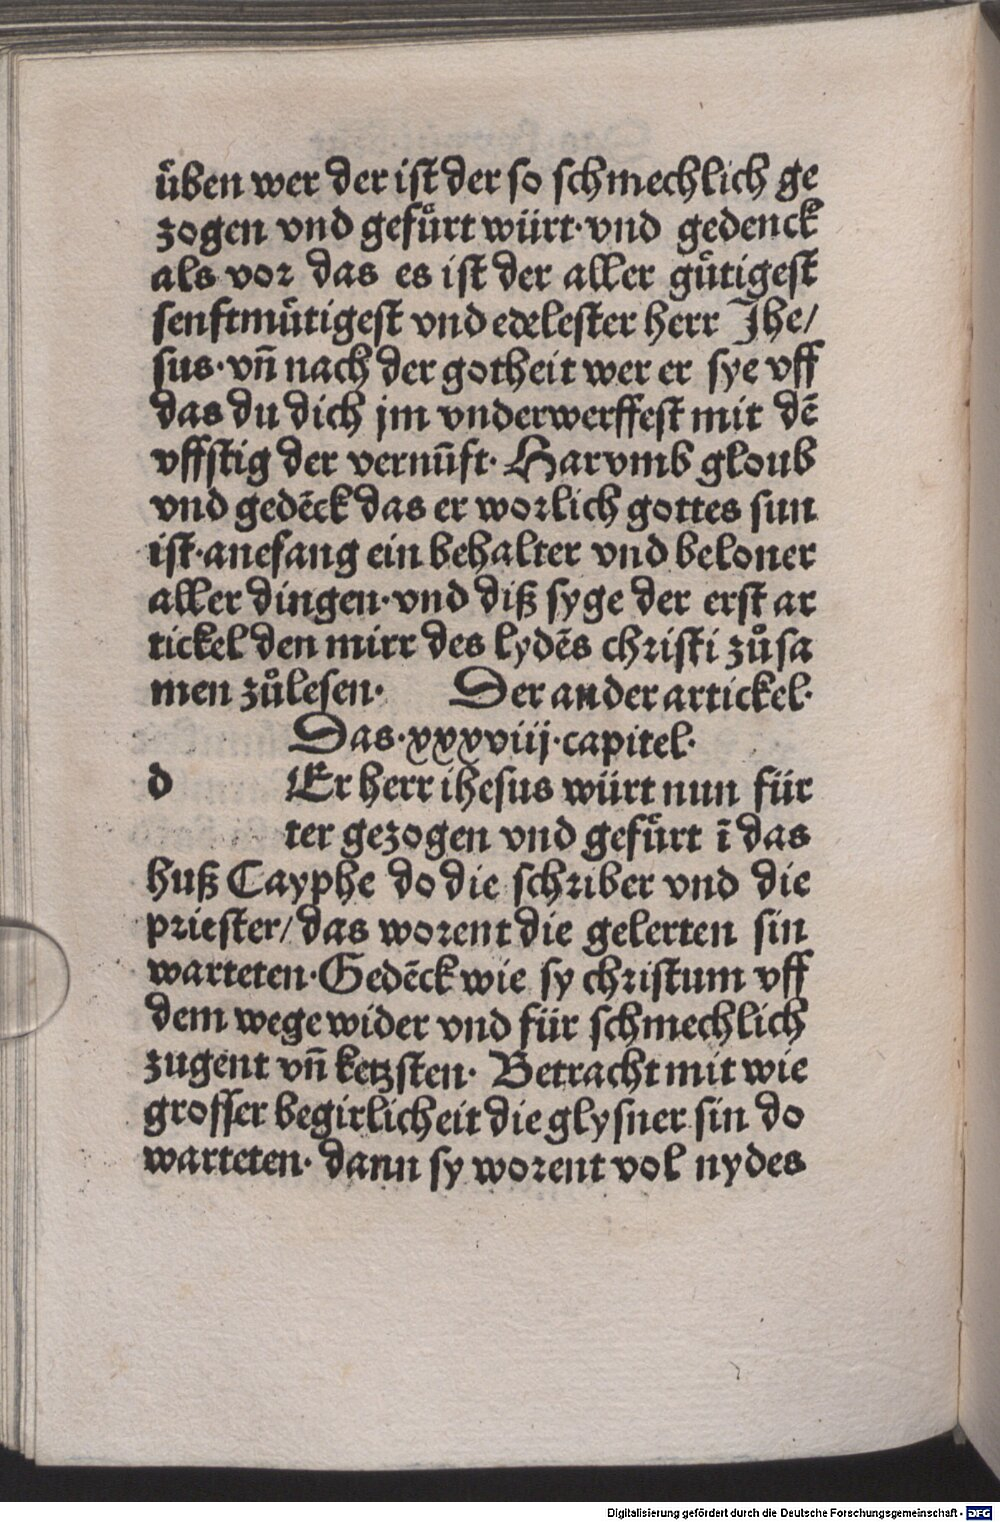 üben wer der ist der so schmechlich ge
zogen vnd gefuͤrt würt·vnd gedenck
als vor das es ist der aller guͤtigest
senftmuͤtigest vnd edelester herr Jhe/
sus·vñ nach der gotheit wer er sye vff
das du dich jm vnderwerffest mit dē
vffstig der vernūft· Harvmb gloub
vnd gedēck das er worlich gottes sun
ist·anefang ein behalter vnd beloner
aller dingen·vnd diß syge der erst ar
tickel den mirr des lydēs christi zůsa
men zůlesen· Der ander artickel·
Das·xxxviij·capitel·
d Er herr ihesus würt nun für
ter gezogen vnd gefuͤrt ī das
huß Cayphe do die schriber vnd die
priester/das worent die gelerten sin
warteten·Gedēck wie sy christum vff
dem wege wider vnd für schmechlich
zugent vñ ketzsten· Betracht mit wie
grosser begirlicheit die glysner sin do
warteten· dann sy worent vol nydes
Digitalisierung gefördert durch die Deutsche Forschungsgemeinschaft - DFG